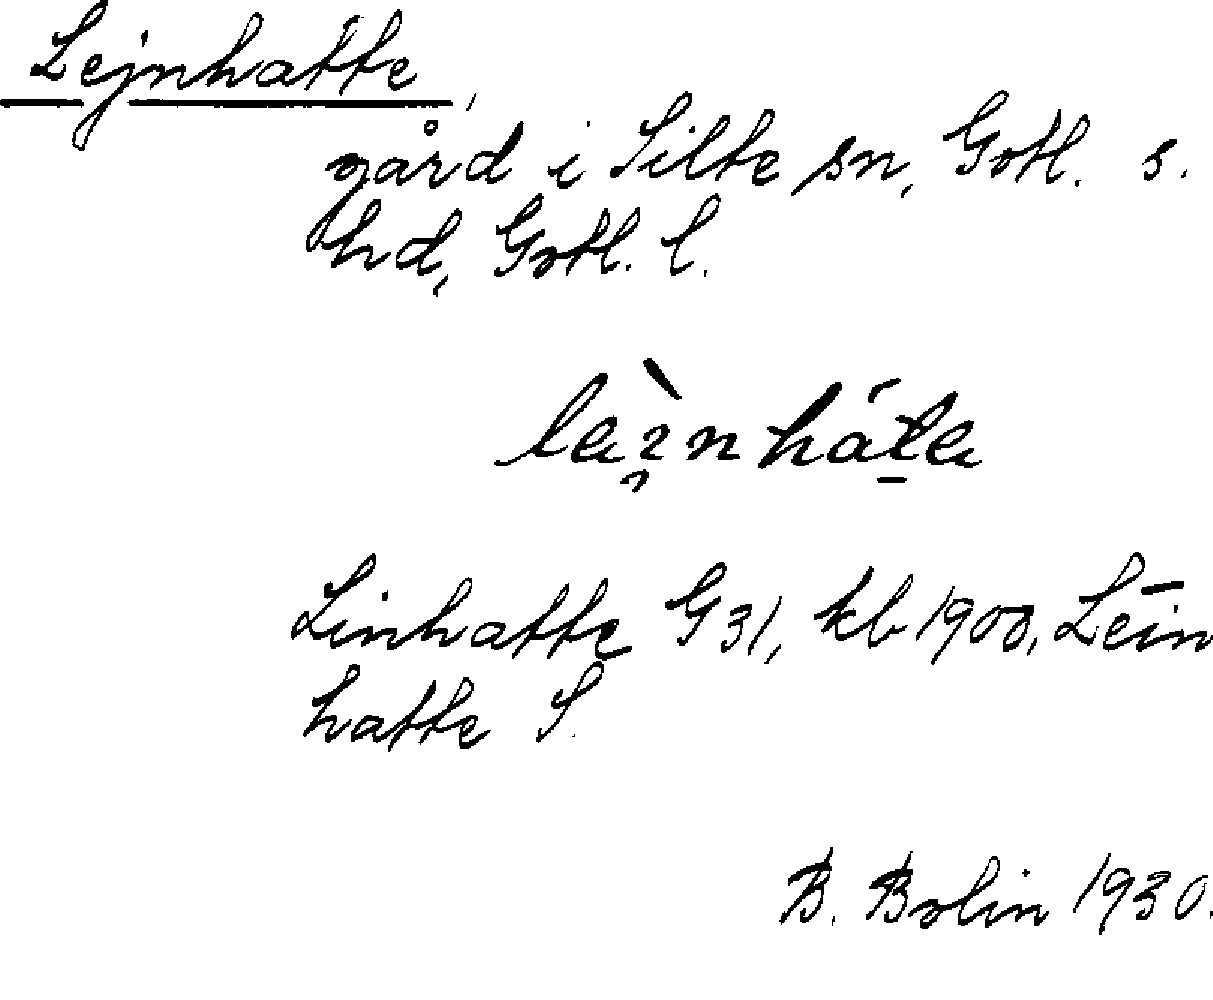 Lejnhatte,
gård i Silte sn, Gotl. s.
hd, Gotl. l.
Linhatte G 31, kb 1900, Lein
hatte S.
B. Bolin 1930.